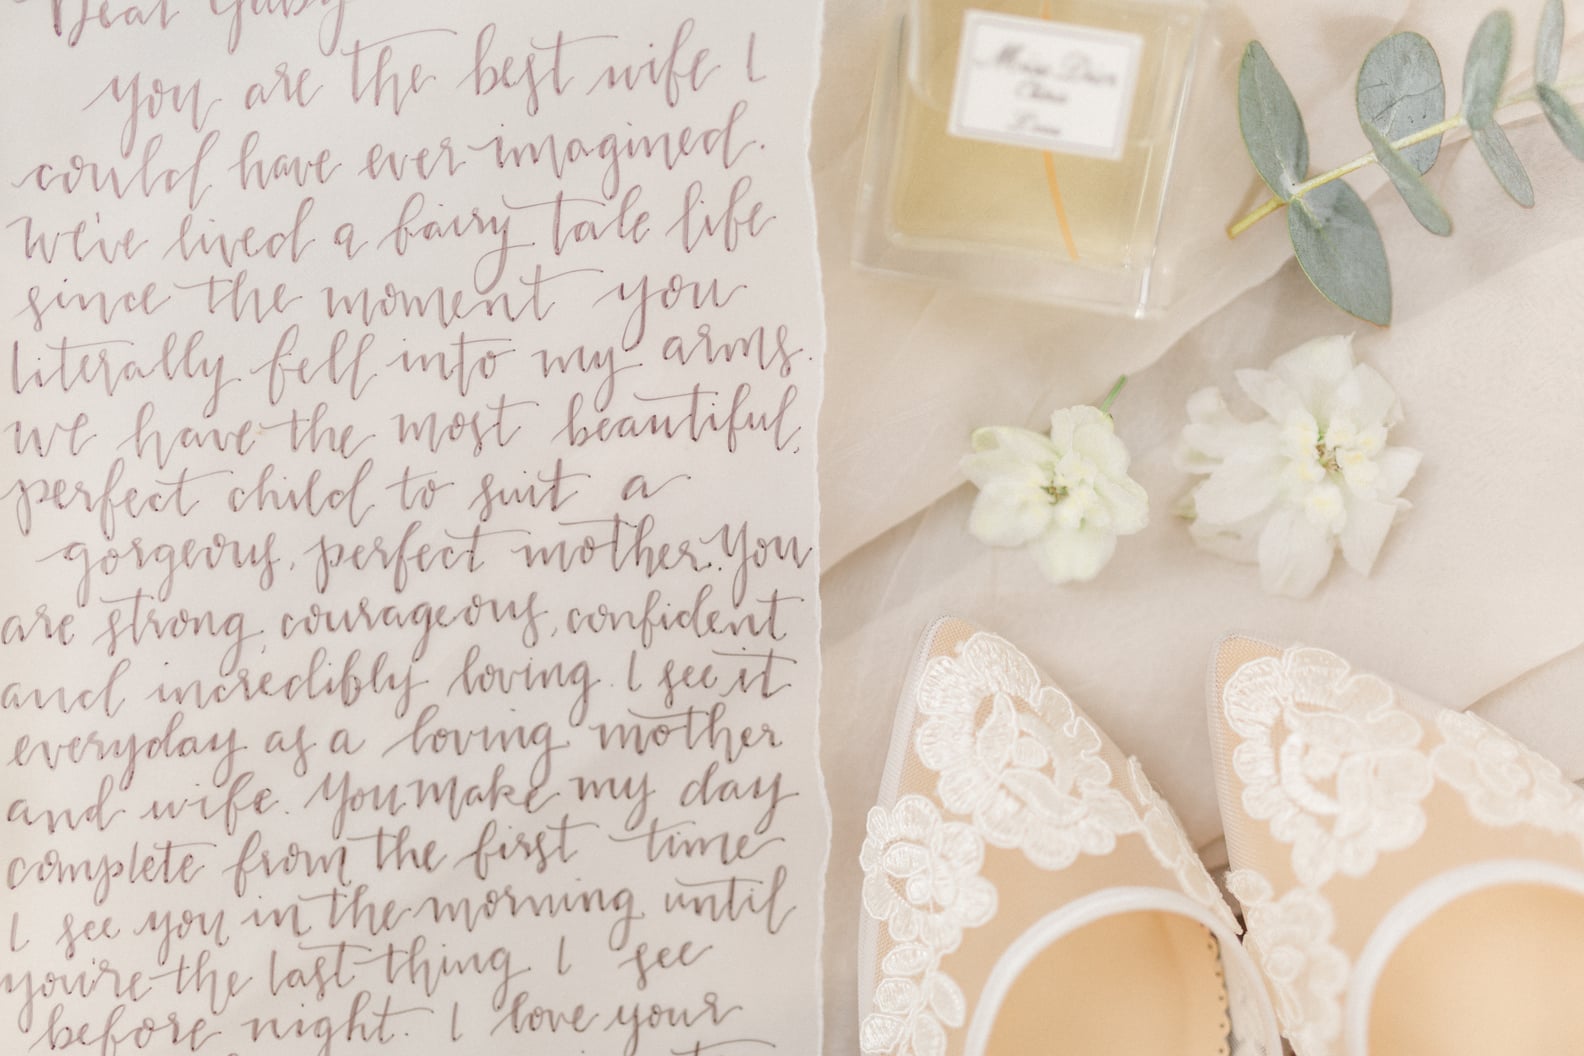 Dear Gaby
You are the best wife I
could have ever imagined.
We've lived a fairy tale life
since the moment you
literally fell into my arms.
We have the most beautiful,
perfect child to suit a
gorgeous, perfect mother. You
are strong, courageous, confident
and incredibly loving. I see it
everyday as a loving mother
and wife. You make my day
complete from the first time
I see you in the morning until
you're the last thing I see
before night. I love your
Miss Dior